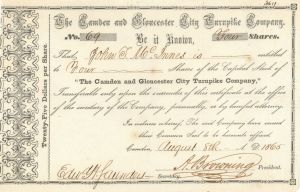 The Camden and Gloucester City Turnpike Company.
No. 69 Be it Known, Four Shares.
That John T. McInnes is entitled
to Four Shares of the Capital Stock of
"The Camden and Gloucester City Turnpike Company,"
Transferable only upon the surrender of this certificate at the office
of the secretary of the Company, personally, or by lawful attorney.
In witness whereof, The said Company have caused
their Common Seal to be hereunto affixed
Camden, August 8th A D 1865
A. Browning
President.
Secretary
Twenty-Five Dollars per Share.